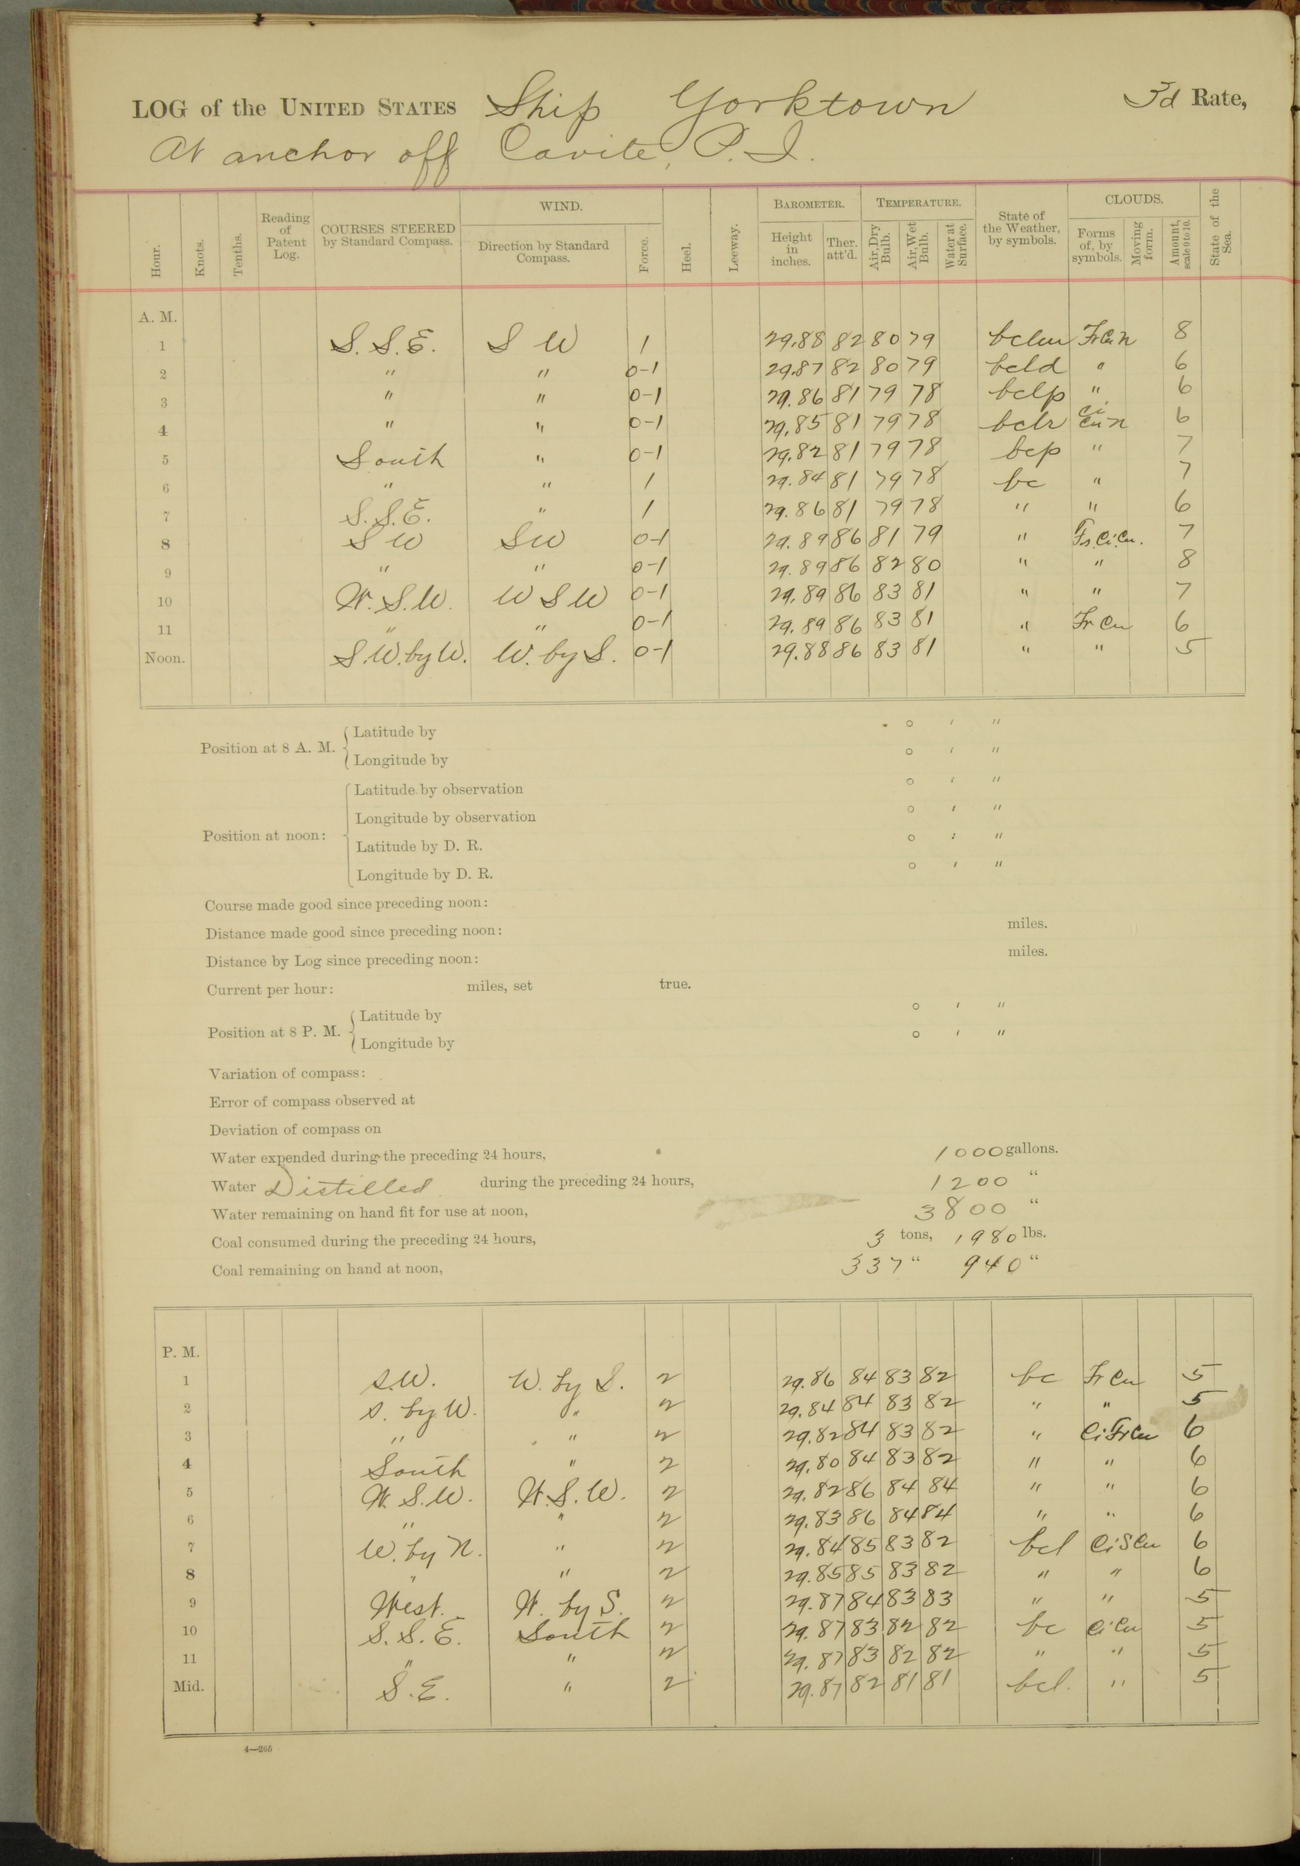 LOG of the UNITED STATES Ship Yorktown 3d Rate,
At anchor off Cavite, P. I.
Hour. Knots. Tenths. Reading of Patent Log. COURSES STEERED by Standard Compass. WIND. Direction by Standard Compass. Force. Heel. Leeway. BAROMETER. Height in inches. Ther. att'd. TEMPERATURE. Air, Dry Bulb. Air, Wet Bulb. Water at Surface. State of the Weather, by symbols. CLOUDS. Forms of, by symbols. Moving form. Amount, scale 0 to 10. State of the Sea.
A. M.
1 S. S. E. S W 1 29.88 82 80 79 bclm Fr Cu n 8
2 " " 0-1 29.87 82 80 79 bcld " 6
3 " " 0-1 29.86 81 79 78 bclp " 6
4 " " 0-1 29.85 81 79 78 bclr Ci Cu n 6
5 South " 0-1 29.82 81 79 78 bcp " 7
6 " " 1 29.84 81 79 78 bc " 7
7 S. S. E. " 1 29.86 81 79 78 " " 6
8 S W SW 0-1 29.89 86 81 79 " Fs. Ci. Cu. 7
9 " " 0-1 29.89 86 82 80 " " 8
10 W. S. W. W S W 0-1 29.89 86 83 81 " " 7
11 " " 0-1 29.89 86 83 81 " Fr Cu 6
Noon. S. W. by W. W. by S. 0-1 29.88 86 83 81 " " 5
Position at 8 A. M. Latitude by ° ′ ″
Longitude by ° ′ ″
Position at noon: Latitude by observation ° ′ ″
Longitude by observation ° ′ ″
Latitude by D. R. ° ′ ″
Longitude by D. R. ° ′ ″
Course made good since preceding noon:
Distance made good since preceding noon: miles.
Distance by Log since preceding noon: miles.
Current per hour: miles, set true.
Position at 8 P. M. Latitude by ° ′ ″
Longitude by ° ′ ″
Variation of compass:
Error of compass observed at
Deviation of compass on
Water expended during the preceding 24 hours, 1000 gallons.
Water Distilled during the preceding 24 hours, 1200 "
Water remaining on hand fit for use at noon, 3800 "
Coal consumed during the preceding 24 hours, 3 tons, 1980 lbs.
Coal remaining on hand at noon, 337 " 940 "
P. M.
1 S.W. W. by S. 2 29.86 84 83 82 bc Fr Cu 5
2 S. by W. " 2 29.84 84 83 82 " " 5
3 " " 2 29.82 84 83 82 " Ci Fr Cu 6
4 South " 2 29.80 84 83 82 " " 6
5 W. S. W. W. S. W. 2 29.82 86 84 84 " " 6
6 " " 2 29.83 86 84 84 " " 6
7 W. by N. " 2 29.84 85 83 82 bcl Ci S Cu 6
8 " " 2 29.85 85 83 82 " " 6
9 West. W. by S. 2 29.87 84 83 83 " " 5
10 S. S. E. South 2 29.87 83 82 82 bc Ci Cu 5
11 " " 2 29.87 83 82 82 " " 5
Mid. S. E. " 2 29.87 82 81 81 bcl. " 5
4—265